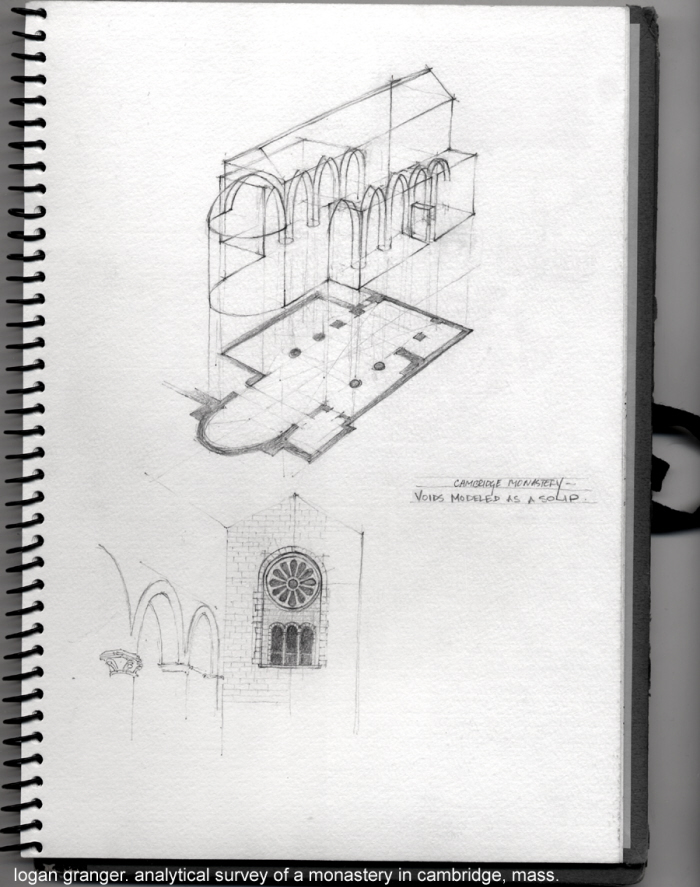 CAMBRIDGE MONASTERY —
VOIDS MODELED AS A SOLID.
logan granger. analytical survey of a monastery in cambridge, mass.